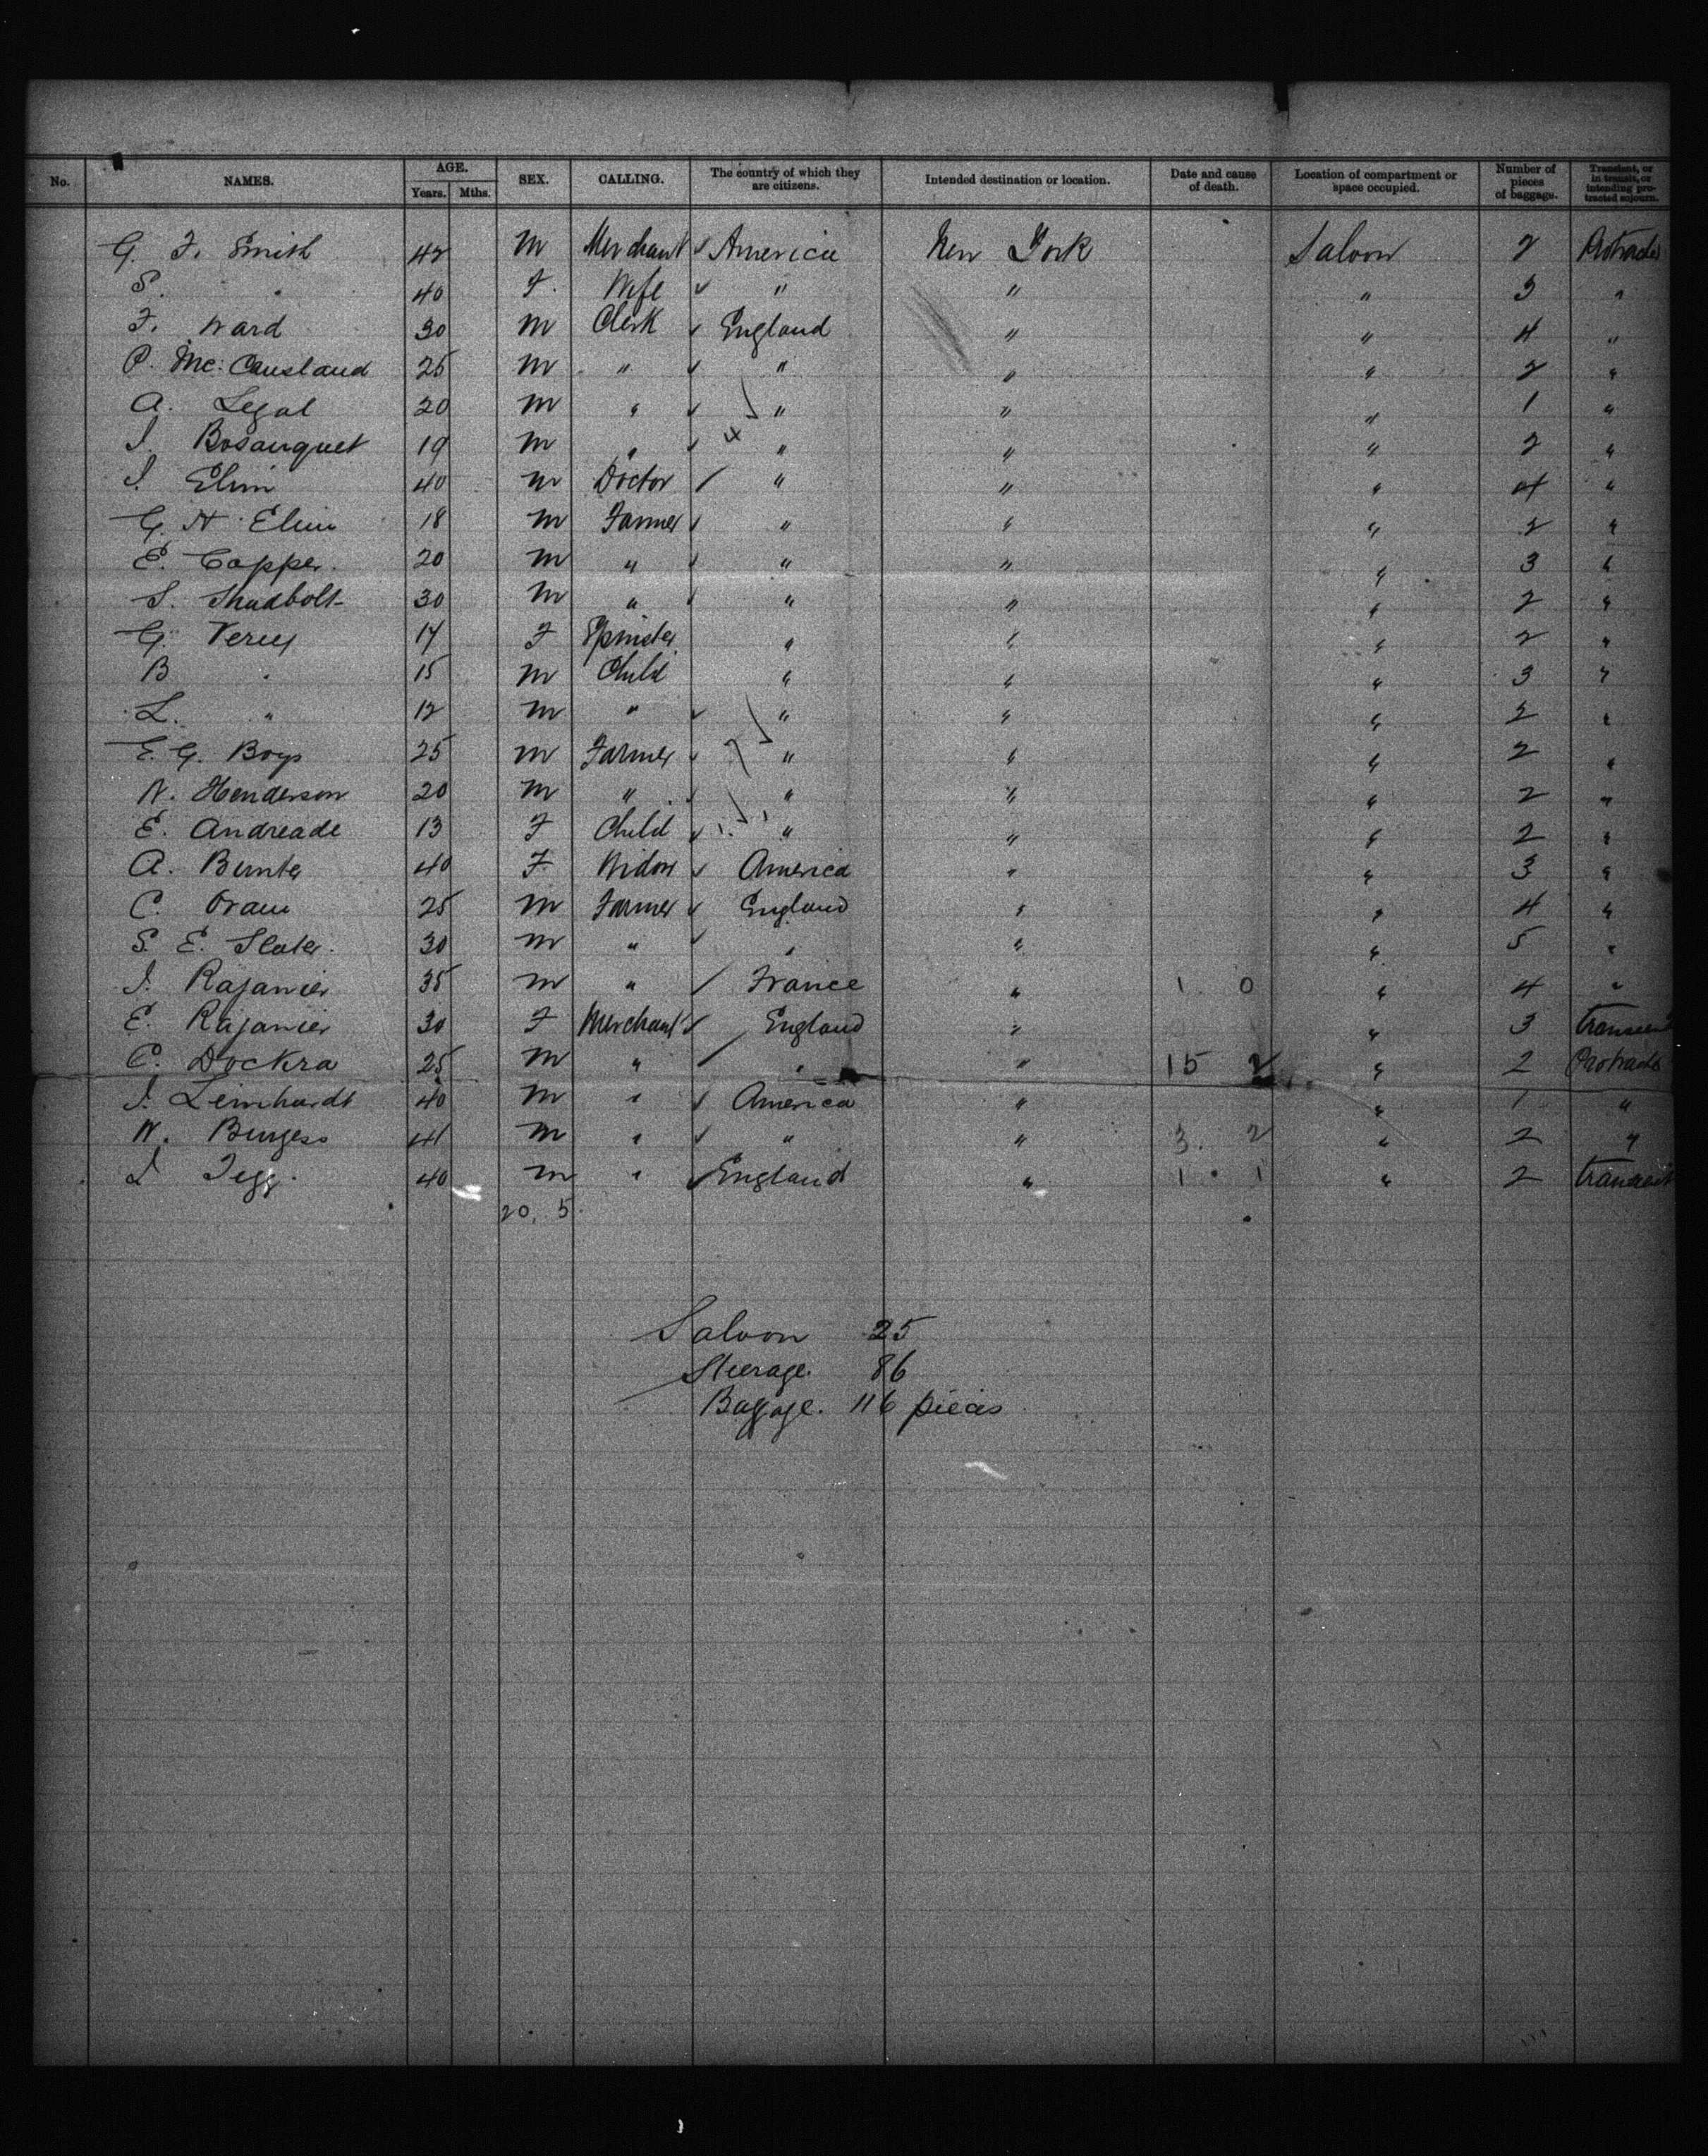 No. NAMES. AGE. Years. Mths. SEX. CALLING. The country of which they are citizens. Intended destination or location. Date and cause of death. Location of compartment or space occupied. Number of pieces of baggage. Transient, or in transit, or intending protracted sojourn.
G. F. Smith 42 M Merchant America New York Saloon 2
S. " 40 F. Wife " " " 3 "
F. Ward 30 M Clerk England " " 4 "
P. Mc. Causland 25 M " " " " 2 "
A. Legal 20 M " " " " 1 "
I. Bosanquet 19 M " 4 " " " 2 "
I. Elim 40 M Doctor " " " 4 "
G. H Elim 18 M Farmer " " " 2 "
E. Copper. 20 M " " " " 3 "
S. Shadbolt 30 M " " " " 2 "
G. Verey 17 F Spinster " " " 2 "
B " 15 M Child " " " 3 "
L. " 12 M " " " " 2 "
E. G. Boys 25 M Farmer 7 " " " 2 "
W. Henderson 20 M " " " " 2 "
E. Andreade 13 F Child " " " 2 "
A. Bunter 40 F Widow America " " 3 "
C. Oram 25 M Farmer England " " 4 "
S. E. Slater. 30 M " " " " 5 "
J. Rajanier 35 M " France " 1 0 " 4 "
E. Rajanier 30 F Merchant England " " 3 transient
C. Dockra 25 M " " " 15 2 " 2
J. Leinhardt 40 M " America " " 1 "
W. Burgess 41 M " " " 3. 2 " 2 "
I Tegg. 40 M " England " 1 . 1 " 2 transient
20. 5
Saloon 25
Steerage. 86
Baggage. 116 pieces